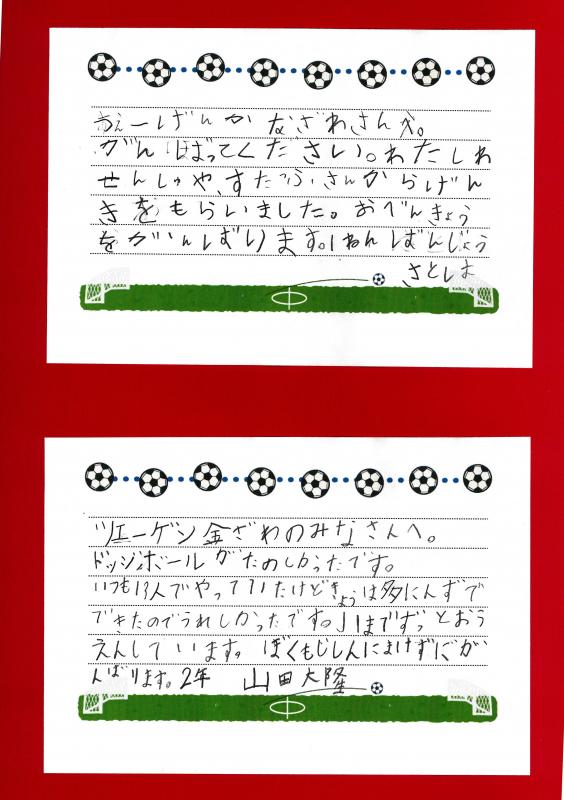 つえーげんかなざわさんへ。
がんばってください。わたしわ
せんしゅや、すたっふさんからげん
きをもらいました。おべんきょう
をがんばります。1ねん ばんじょう
さとしお
ツエーゲン金ざわのみなさんへ。
ドッジボールがたのしかったです。
いつも13人でやっていたけどきょうは多にんずうで
できたのでうれしかったです。J1までずっとおう
えんしています。ぼくもじしんにまけずにが
んばります。2年 山田大隆